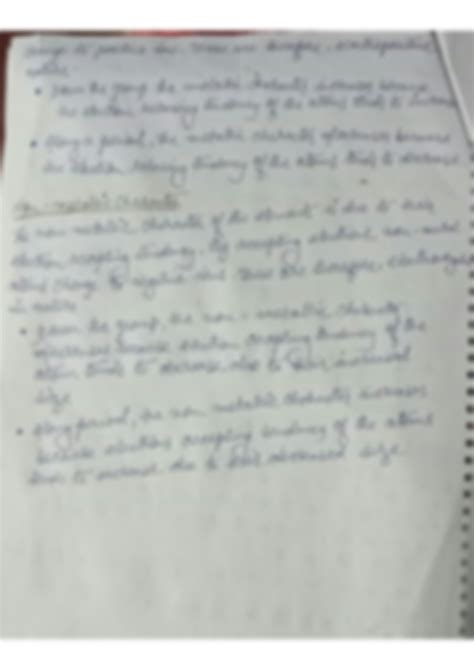 change to positive ions. These are therefore, electropositive
nature.
• Down the group, the metallic character increases because
the electron releasing tendency of the atoms tends to increase
• Along a period, the metallic character decreases because
the electron releasing tendency of the atoms tends to decrease
Non-metallic Character
The non-metallic character of the element is due to their
electron accepting tendency. By accepting electrons, non-metal
atoms change to negative ions. These are therefore, electronegative
in nature
• Down the group, the non-metallic character
decreases because electron accepting tendency of the
atoms tends to decrease due to their increased
size
• Along period, the non metallic character increases
because electrons accepting tendency of the atoms
tends to increase due to their decreased size